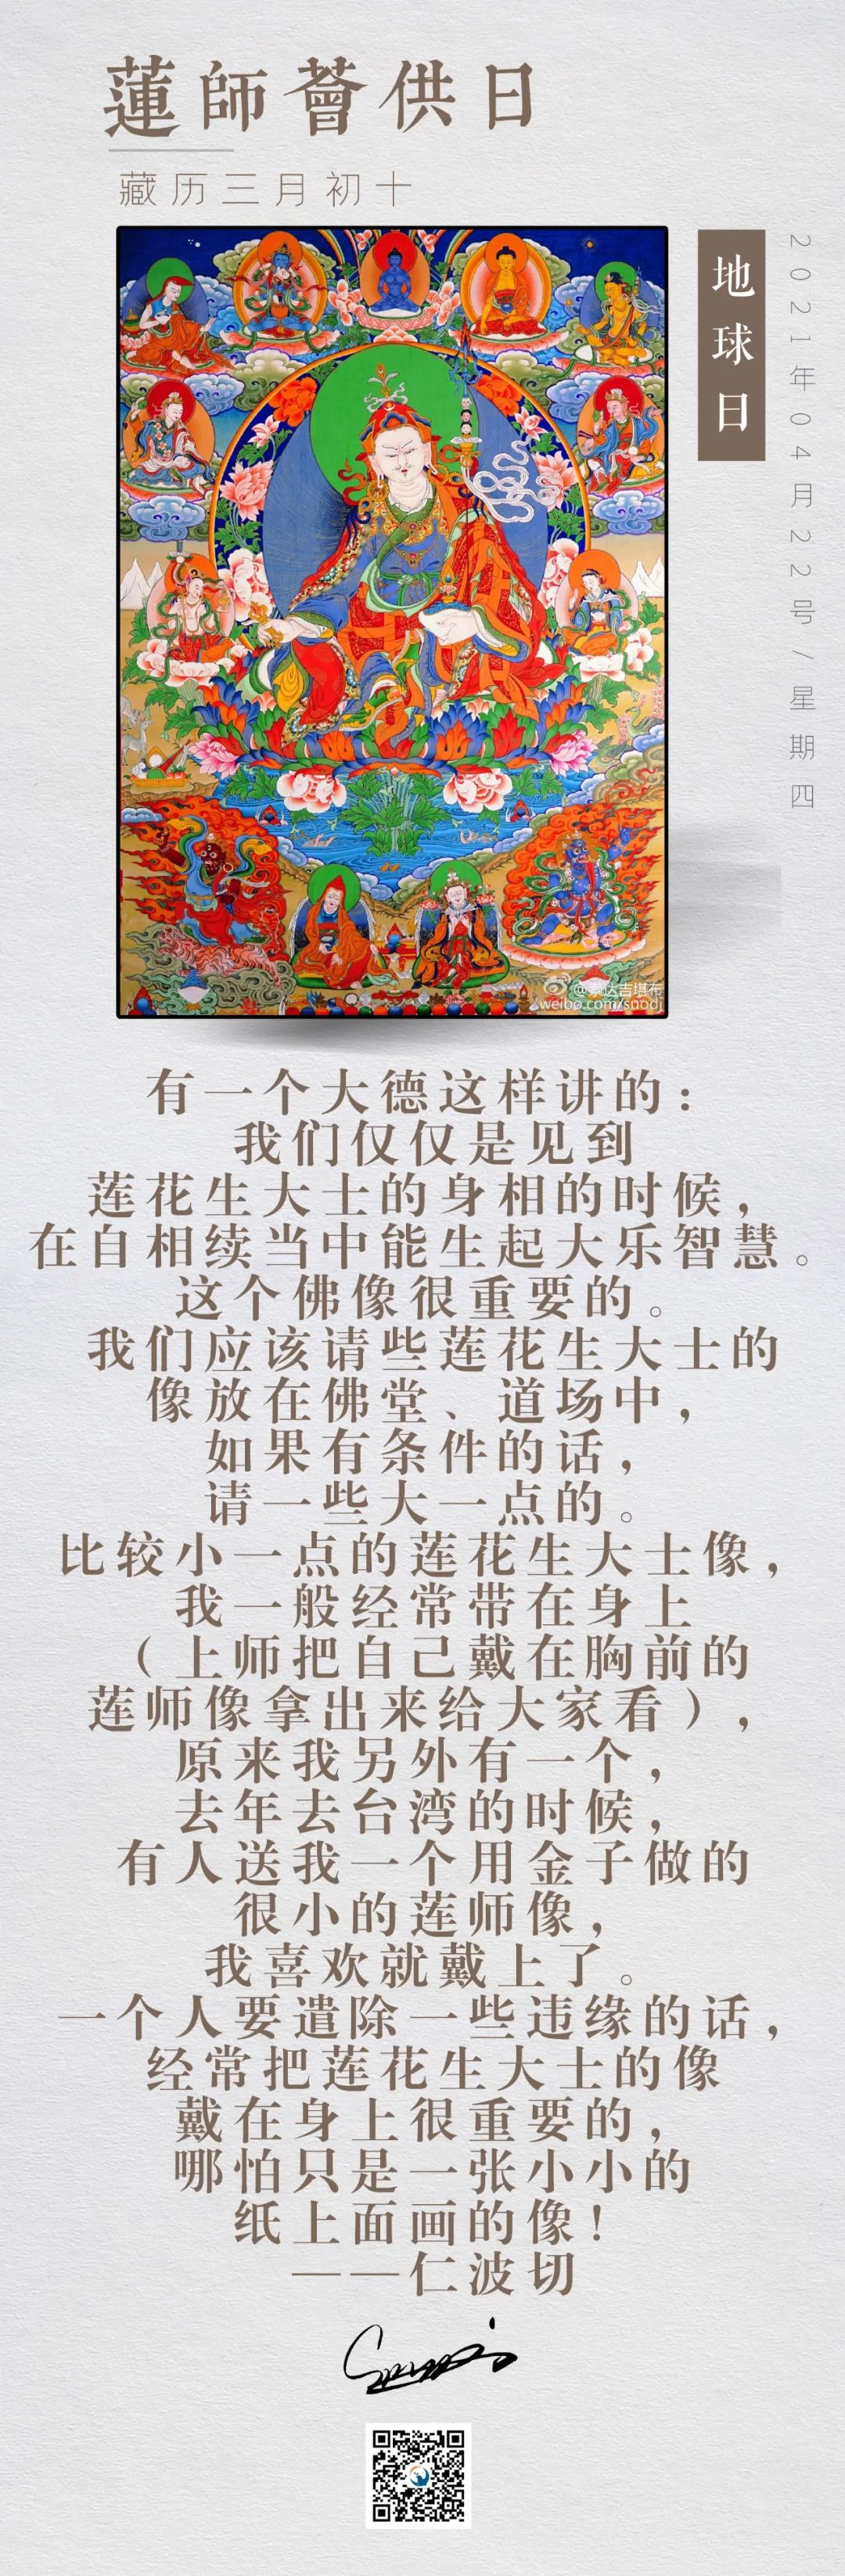 蓮師薈供日
藏历三月初十
地球日
2021年04月22号/星期四
@索达吉堪布
weibo.com/suodj
有一个大德这样讲的：
我们仅仅是见到
莲花生大士的身相的时候，
在自相续当中能生起大乐智慧。
这个佛像很重要的。
我们应该请些莲花生大士的
像放在佛堂、道场中，
如果有条件的话，
请一些大一点的。
比较小一点的莲花生大士像，
我一般经常带在身上
（上师把自己戴在胸前的
莲师像拿出来给大家看），
原来我另外有一个，
去年去台湾的时候，
有人送我一个用金子做的
很小的莲师像，
我喜欢就戴上了。
一个人要遣除一些违缘的话，
经常把莲花生大士的像
戴在身上很重要的，
哪怕只是一张小小的
纸上面画的像！
——仁波切